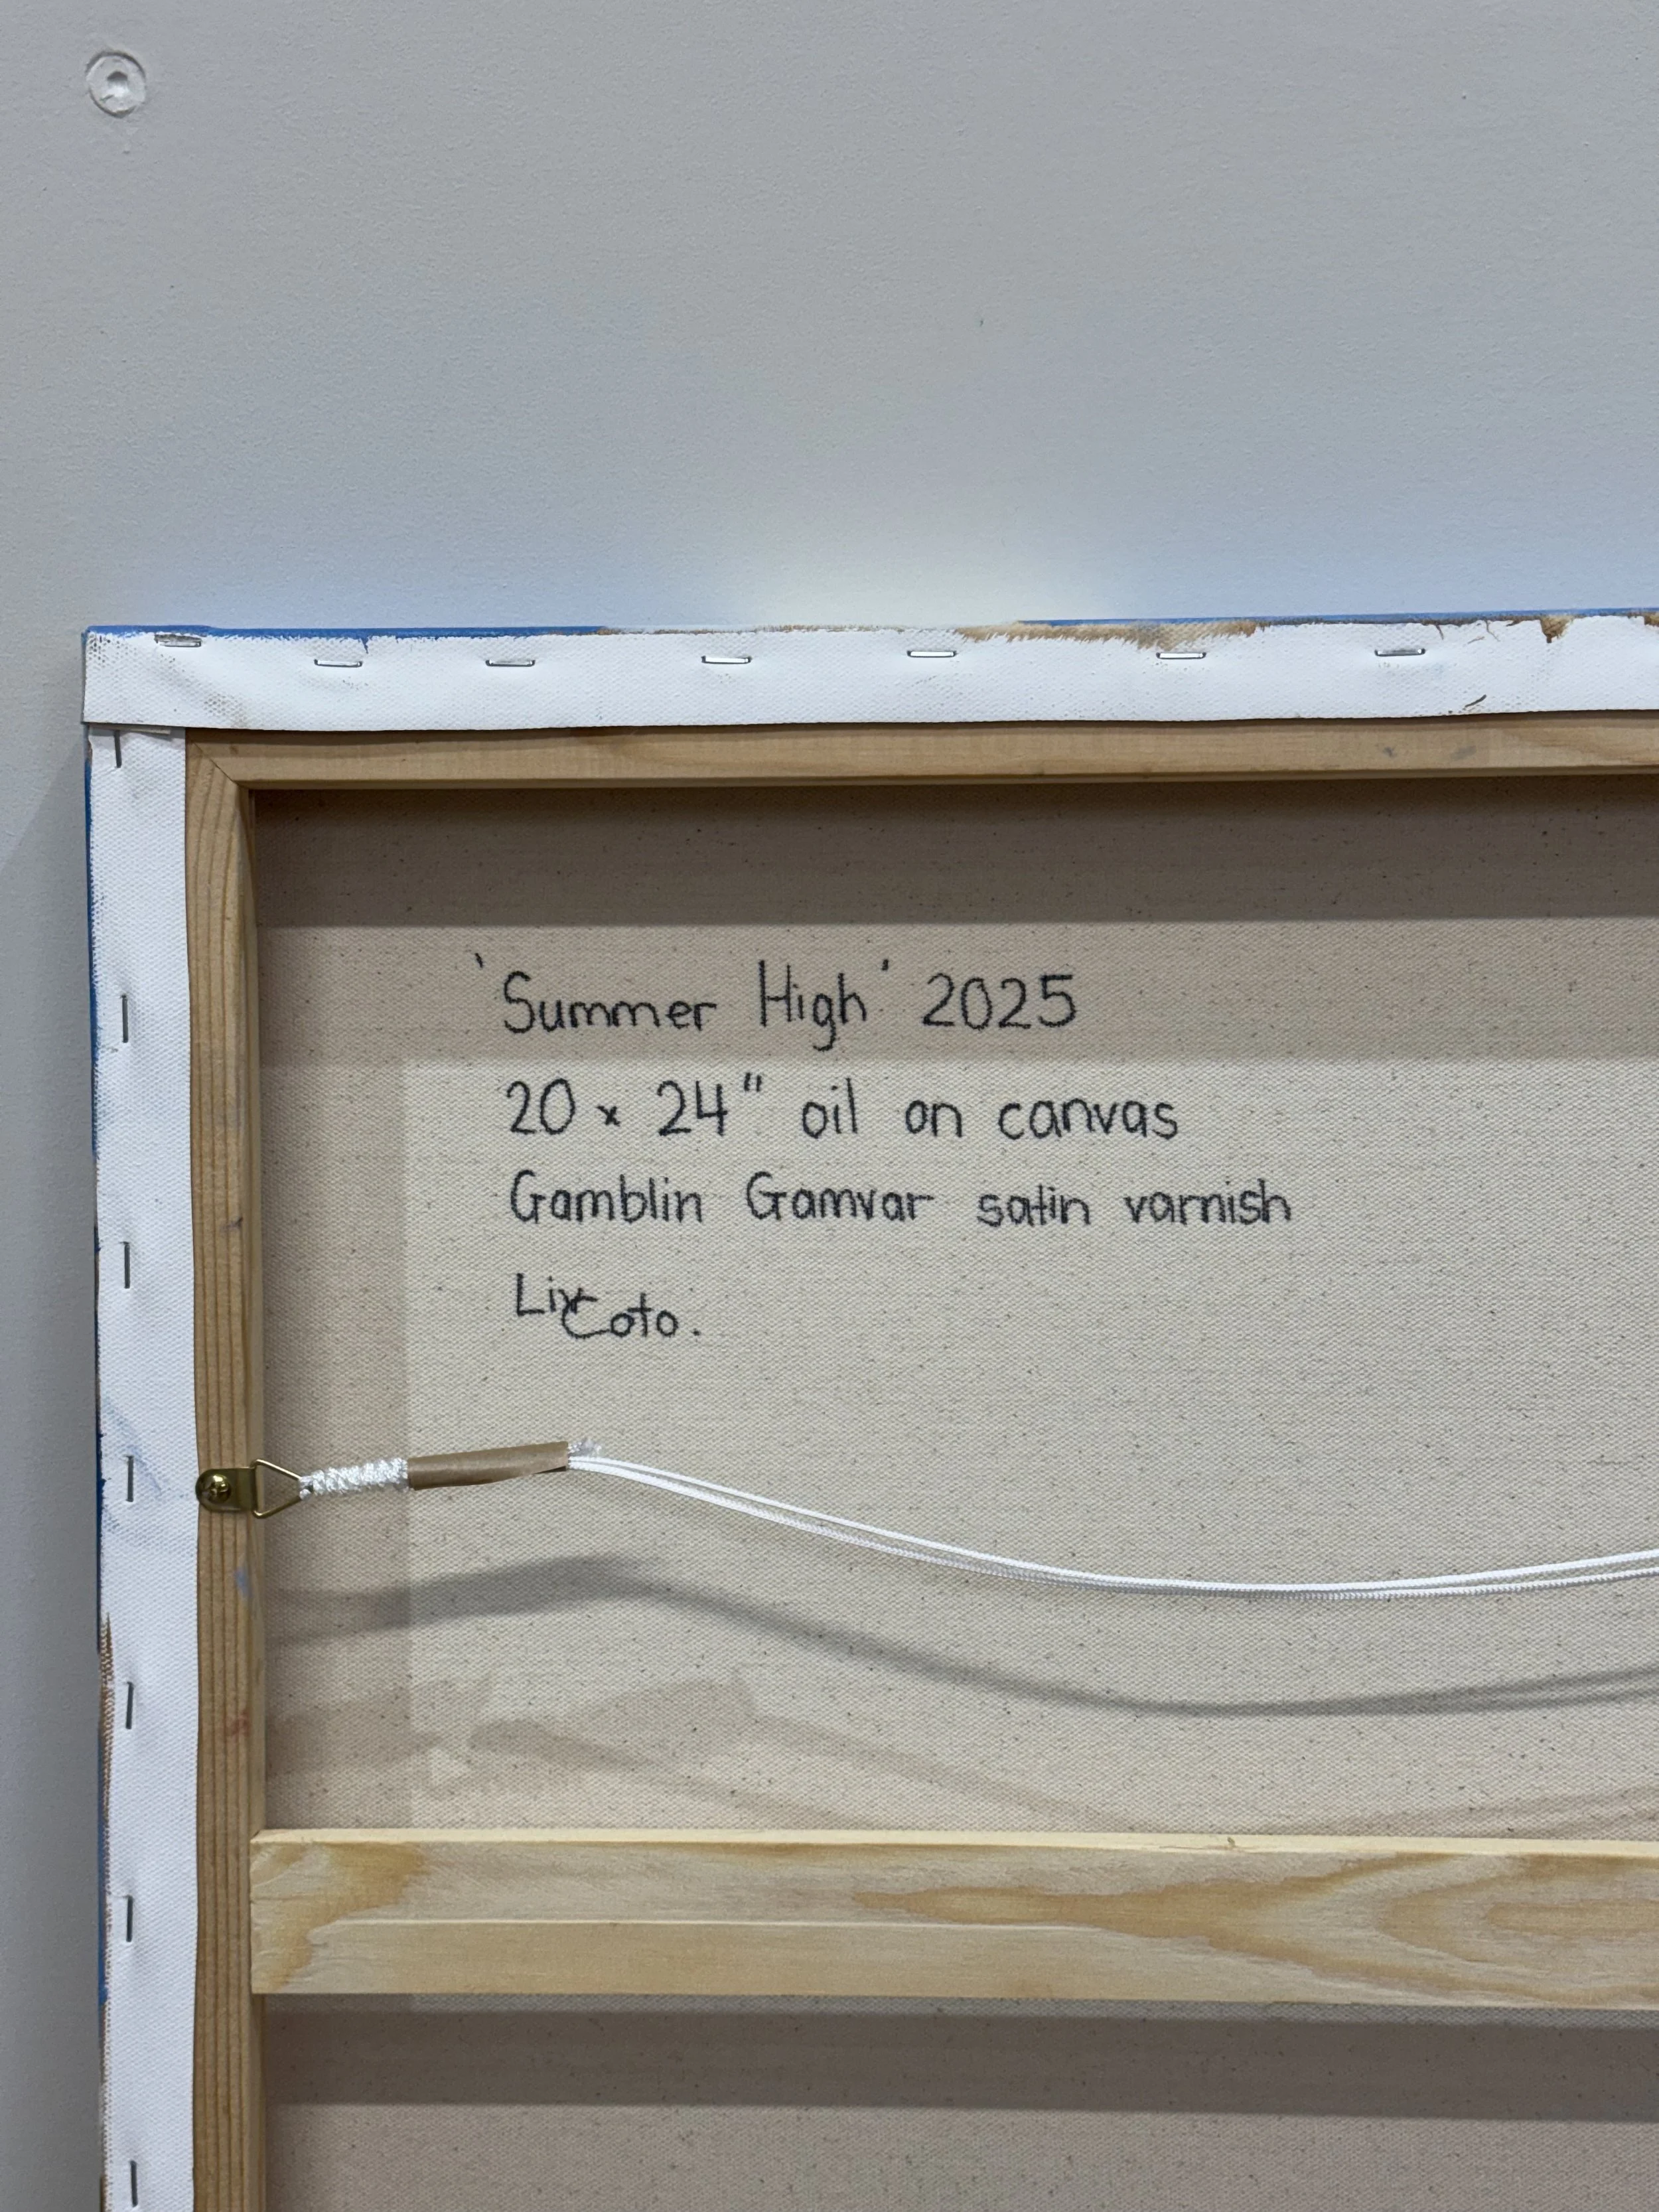 'Summer High' 2025
20 x 24" oil on canvas
Gamblin Gamvar satin varnish
Coto.